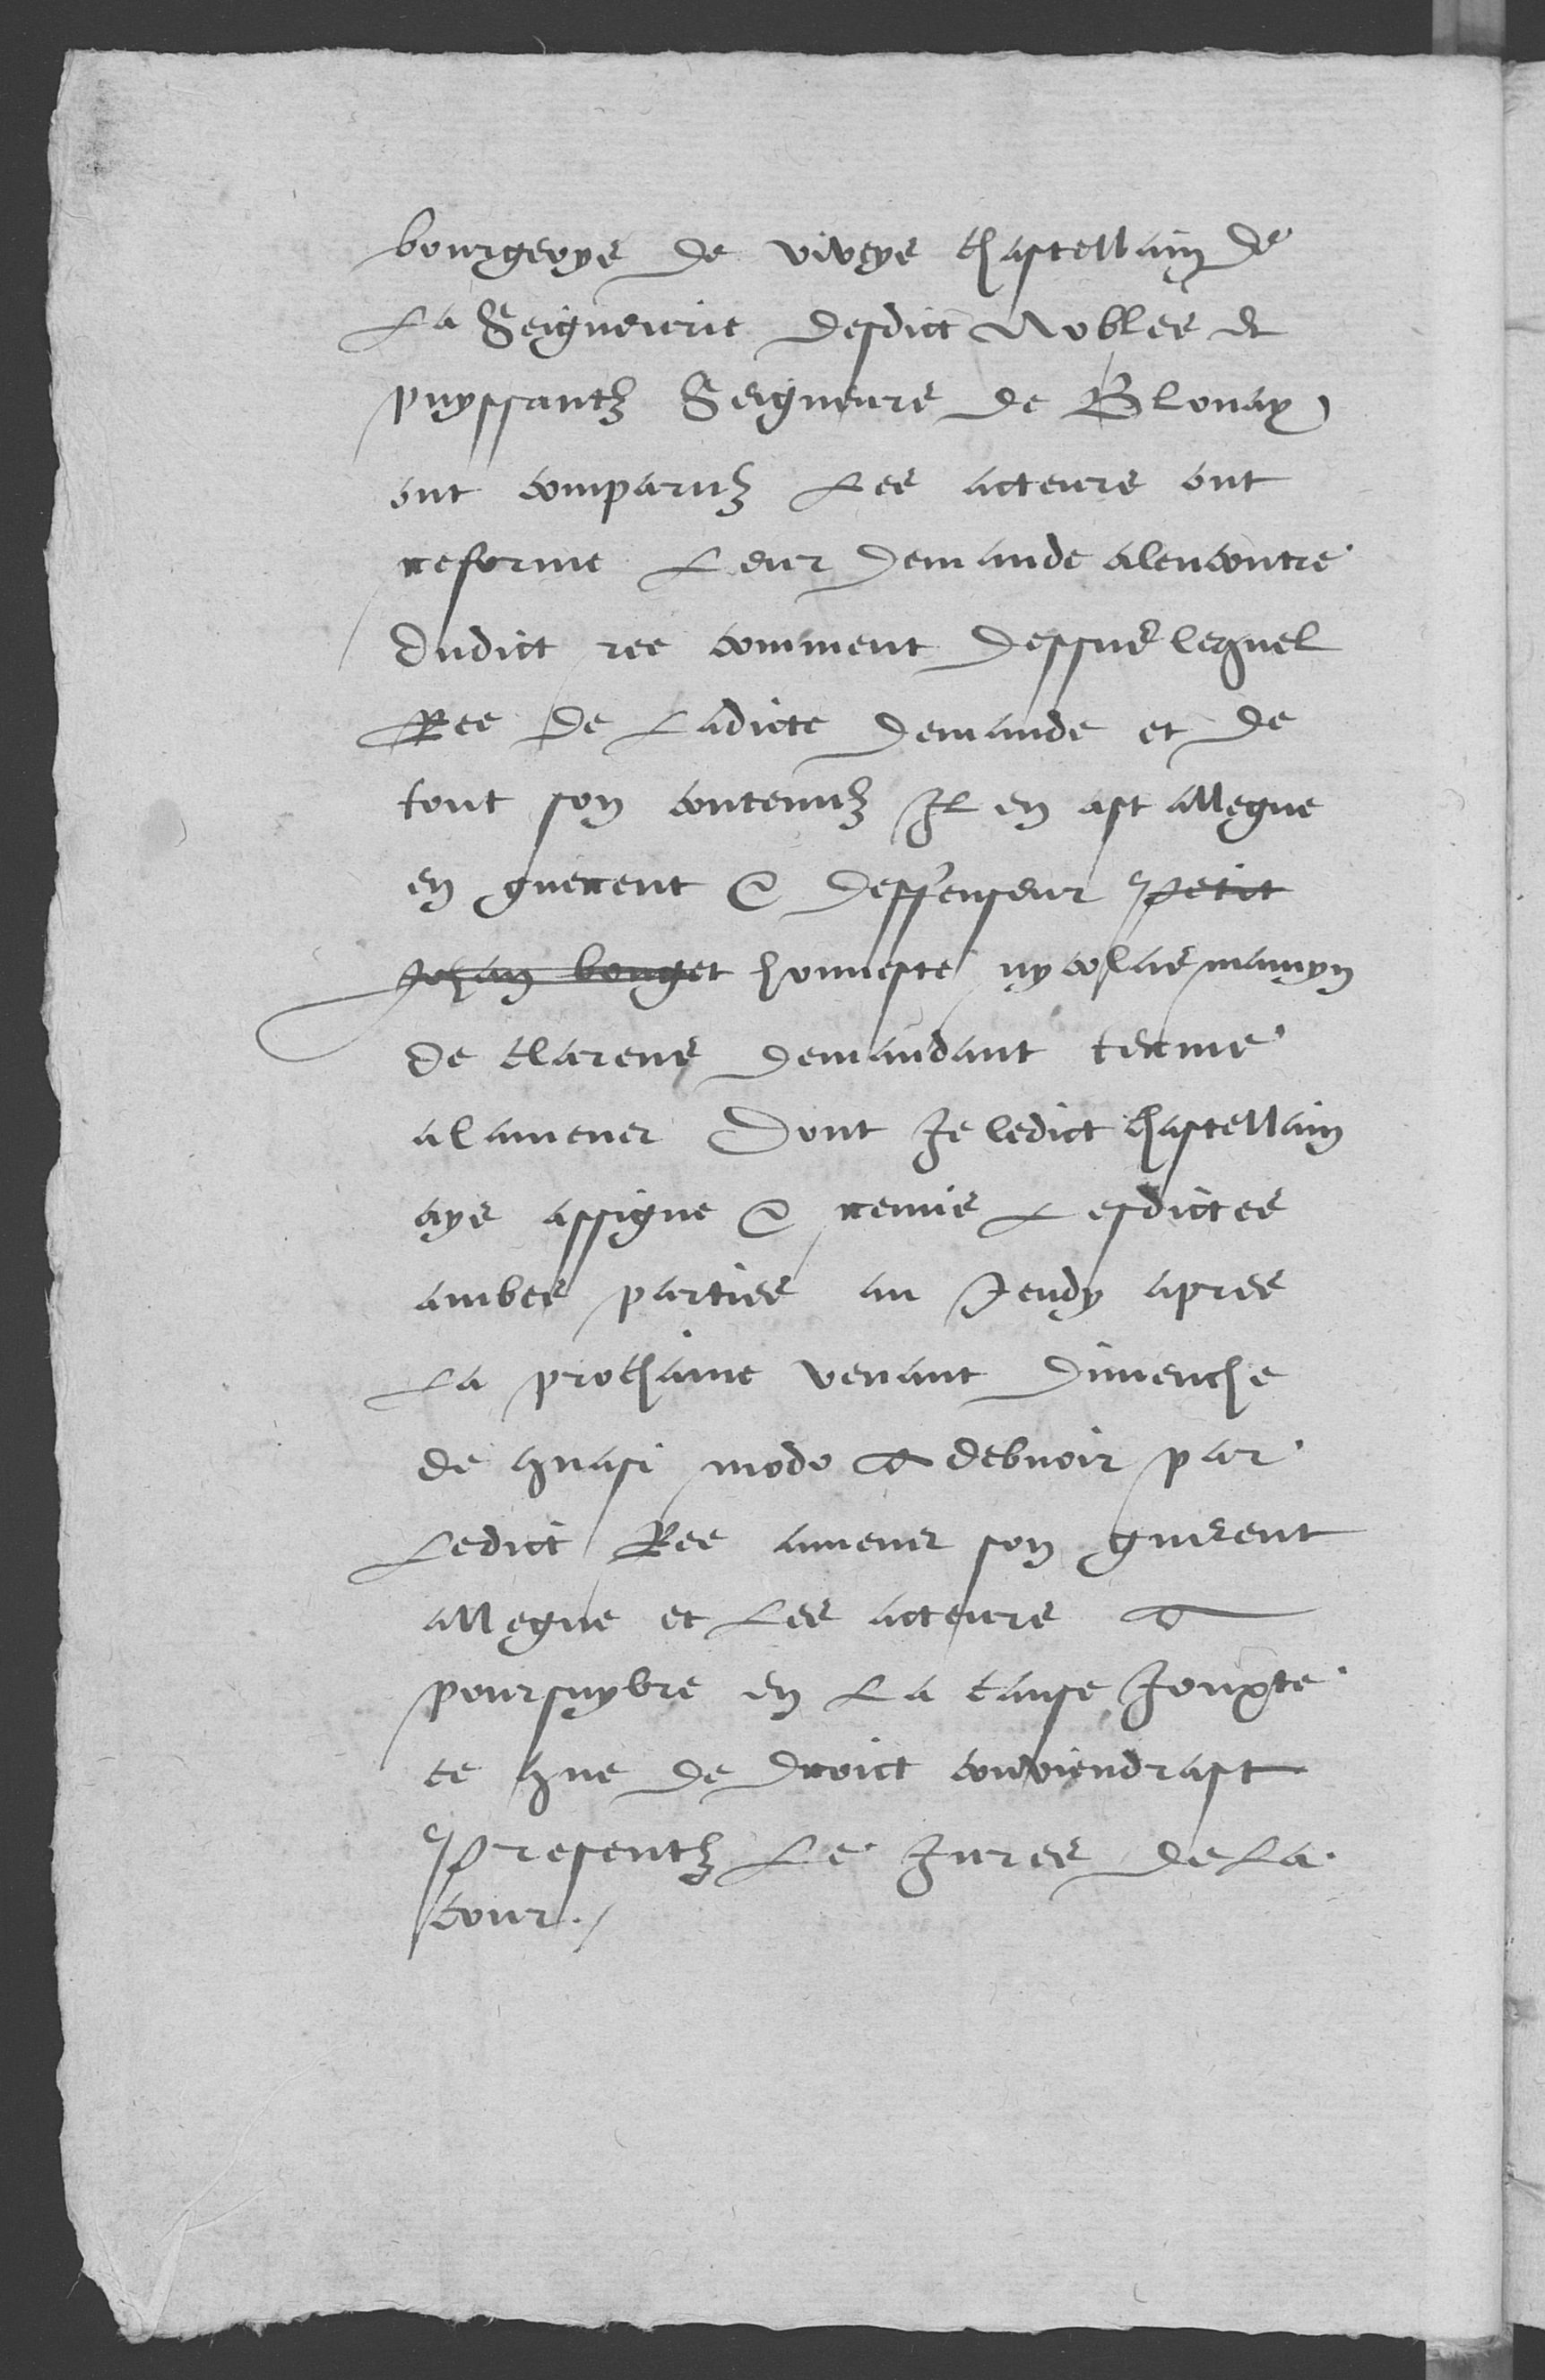 bourgeoys de viveys chastellain de
La Seigneurie desdict Nobles et
puyssantz Seigneurs de Blonay
ont comparuz Les acteurs ont
reforme Leur demande alencontre
dudict ree comment dessus lequel
Ree de Ladicte demande et de
tout son contenuz Il en ast allegue
en guerent & deffenseur Petit
Jehan bouget honneste nycolas mamyn
de clarens demandant terme
alamener Dont Je ledict chastellain
ays assigne & remis Lesdictes
ambes parties au Jeudy apres
La prochaine venant dimenche
de quasi modo a debvoir par
Ledict Ree amener son guerent
allegue et Les acteurs a
poursuybre en La cause Jouxte
ce que de droict conviendrast
Presentz Le Jures de La
cour./